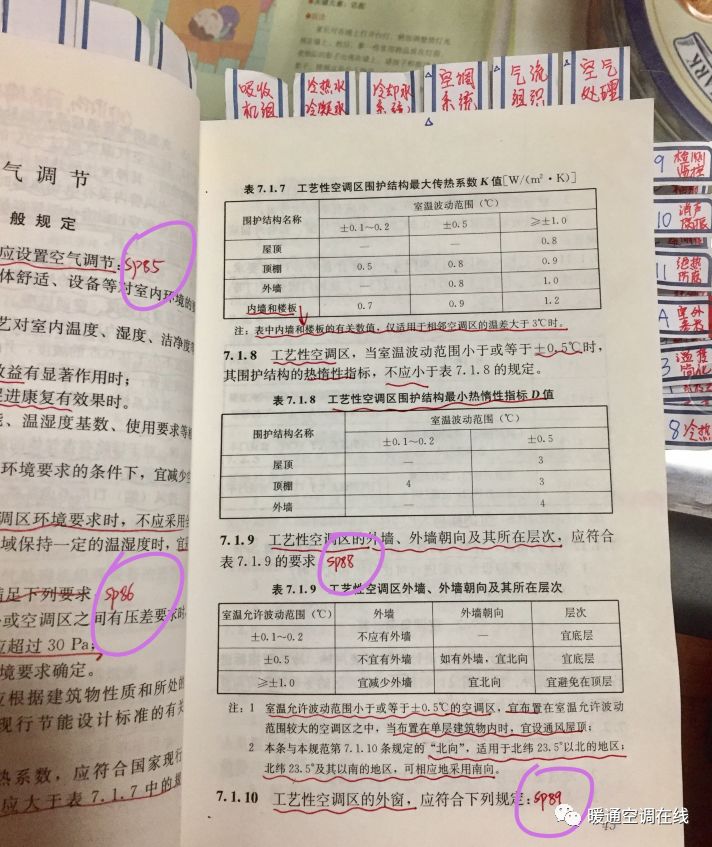 吸收
机组
冷热水
冷凝水
冷却水
系统
空调
系统
气流
组织
空气
处理
9 检测
监控
10 消声
隔振
11 绝热
防腐
A 室外
3 温湿
8 冷热
气调节
般规定
应设置空气调节: SP85
体舒适、设备等对室内环境的
艺对室内温度、湿度、洁净度
效益有显著作用时;
促进康复有效果时。
、温湿度基数、使用要求等
环境要求的条件下,宜减少
调区环境要求时,不应采用
域保持一定的温湿度时,宜
足下列要求 SP86
或空调区之间有压差要求时
应超过 30 Pa;
境要求确定。
应根据建筑物性质和所处的
现行节能设计标准的有关
热系数,应符合国家现行
应大于表 7.1.7 中的规
表 7.1.7 工艺性空调区围护结构最大传热系数 K 值[W/(m²·K)]
围护结构名称 室温波动范围(℃)
±0.1~0.2 ±0.5 ≥±1.0
屋顶 — — 0.8
顶棚 0.5 0.8 0.9
外墙 — 0.8 1.0
内墙和楼板 0.7 0.9 1.2
注:表中内墙和楼板的有关数值,仅适用于相邻空调区的温差大于 3℃时。
7.1.8 工艺性空调区,当室温波动范围小于或等于±0.5℃时,
其围护结构的热惰性指标,不应小于表 7.1.8 的规定。
表 7.1.8 工艺性空调区围护结构最小热惰性指标 D 值
围护结构名称 室温波动范围(℃)
±0.1~0.2 ±0.5
屋顶 — 3
顶棚 4 3
外墙 — 4
7.1.9 工艺性空调区的外墙、外墙朝向及其所在层次,应符合
表 7.1.9 的要求 SP88
表 7.1.9 工艺性空调区外墙、外墙朝向及其所在层次
室温允许波动范围(℃) 外墙 外墙朝向 层次
±0.1~0.2 不应有外墙 — 宜底层
±0.5 不宜有外墙 如有外墙,宜北向 宜底层
≥±1.0 宜减少外墙 宜北向 宜避免在顶层
注:1 室温允许波动范围小于或等于±0.5℃的空调区,宜布置在室温允许波动
范围较大的空调区之中,当布置在单层建筑物内时,宜设通风屋顶;
2 本条与本规范第 7.1.10 条规定的“北向”,适用于北纬 23.5°以北的地区;
北纬 23.5°及其以南的地区,可相应地采用南向。
7.1.10 工艺性空调区的外窗,应符合下列规定: SP89
暖通空调在线
45